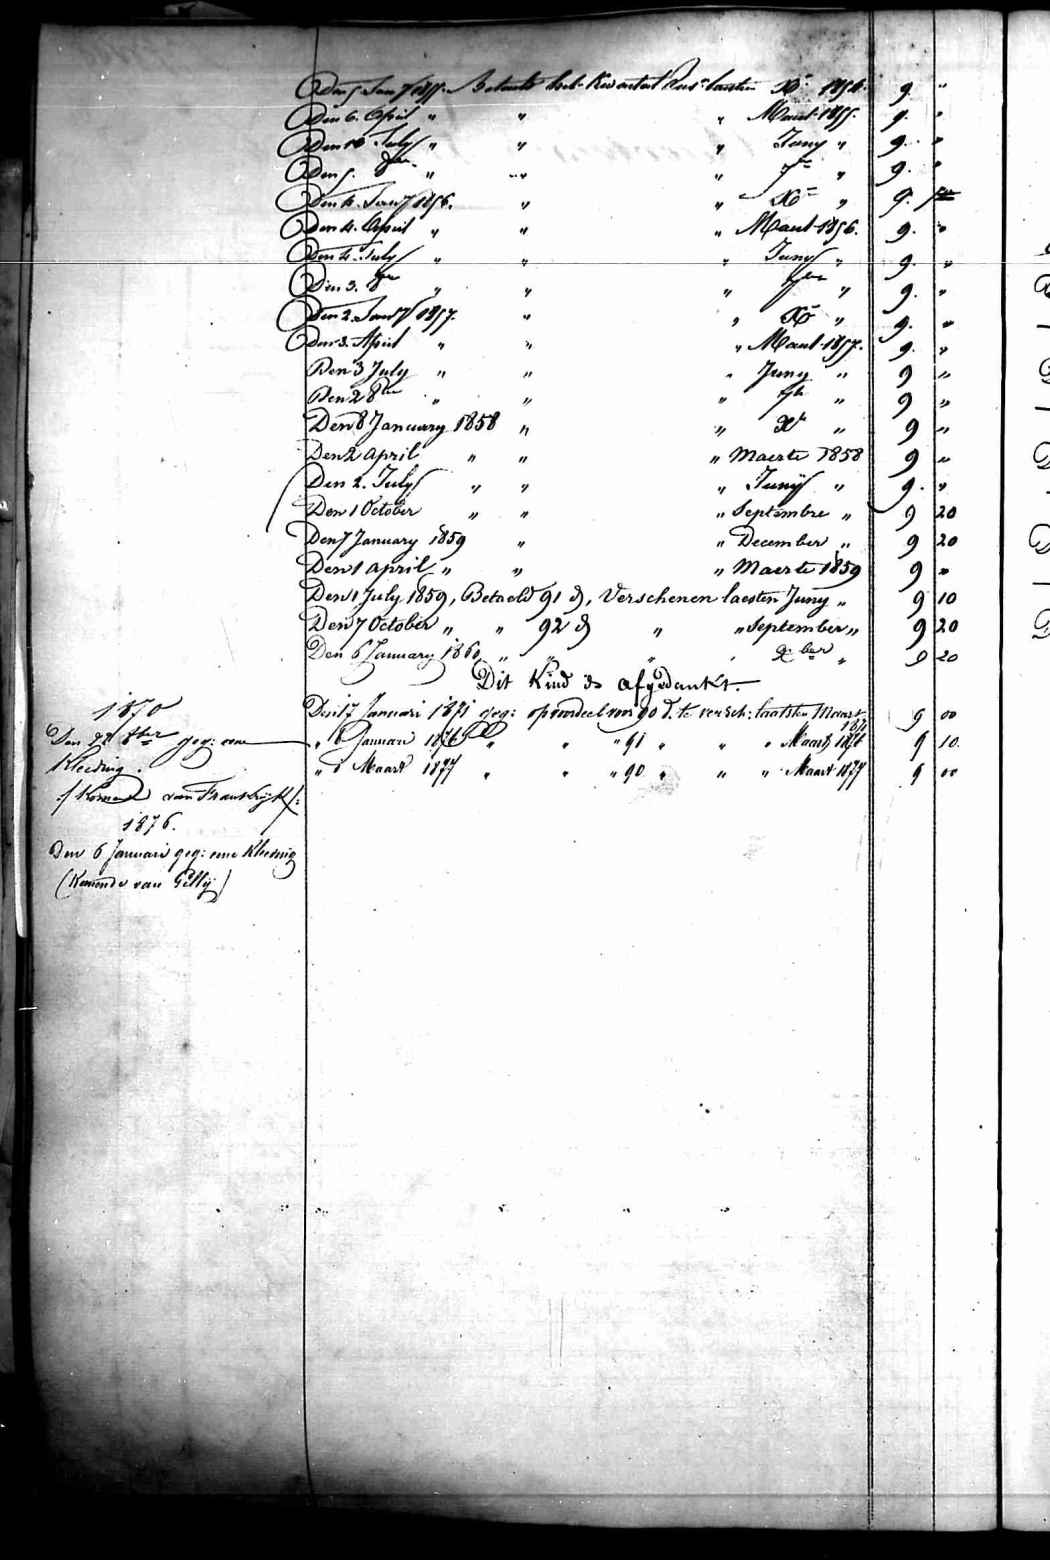 Den 5 Jany 1855. Betaelt het kwartael laesten Xr 1854. 9. "
Den 6. April " " " Maert 1855. 9. "
Den 16 July " " " Juny " 9. "
Den 5. 8er " " " 7er " 9. "
Den 4. Jany 1856. " " Xr " 9.
Den 4. April " " " Maert 1856. 9. "
Den 4. July " " " Juny " 9. "
Den 3. 8er " " " 7ber " 9. "
Den 2. Jany 1857. " " Xr " 9. "
Den 3. April " " " Maert 1857. 9. "
Den 3 July " " " Juny " 9 "
Den 2 8ber " " " 7br " 9 "
Den 8 January 1858 " " Xr " 9 "
Den 2 april " " " Maerte 1858 9 "
Den 2. July " " " Juny " 9. "
Den 1 October " " " Septembre " 9 20
Den 7 January 1859 " " December " 9 20
Den 1 april " " " Maerte 1859 9 "
Den 1 July 1859, Betaeld 91 d, Verschenen laesten Juny " 9 10
Den 7 October " " 92 d " " September " 9 20
Den 6 January 1860 " " " " Xber " 9 20
Dit Kind is afgedankt.
Den 17 Januari 1871 geg: op voordeel van 90 d. te versch: laatsten Maart 1871 9 00
" 6 Januari 1876 " " " 91 " " " Maart 1876 9 10.
" 1 Maart 1877 " " " 90 " " " Maart 1877 9 00
1870
Den 22 8ber geg: eene
Kleeding.
/: Komende van Frankrijk /:
1876.
Den 6 Januari geg: eene Kleeding
(Komende van Gilly)